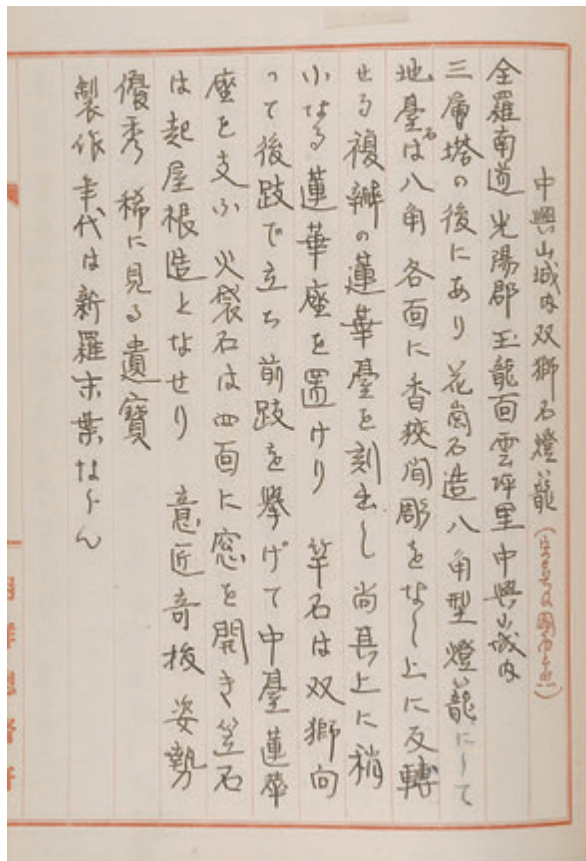 中興山城内双獅石燈籠
全羅南道光陽郡玉龍面雲坪里中興山城内
三層塔の後にあり 花崗石造八角型燈籠にして
地臺石は八角 各面に香狹間彫をなし上に反轉
せる複瓣の蓮華臺を刻出し尚其上に稍
小なる蓮華座を置けり 竿石は双獅向
って後跂で立ち前跂を擧げて中臺蓮華
座を支ふ 火袋石は四面に窓を開き笠石
は起屋根造となせり 意匠奇抜 姿勢
優秀 稀に見る遺寶
製作年代は新羅末葉ならん
朝鮮總督府